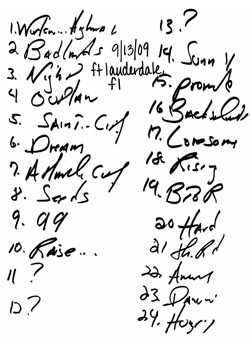 1.
2. Badlands 9/13/09
3. Night ft lauderdale
4 Outlaw fl
5. Saint.. City
6. Dream
7. Atlantic City
8. Seeds
9. 99
10. Raise...
11 ?
12 ?
13. ?
14.
15. Promise
16 Backstreets
17. Lonesome
18. Rising
19. BTBR
20 Hard
21 Th.Rd
22.
23. Dancin
24. Hungry